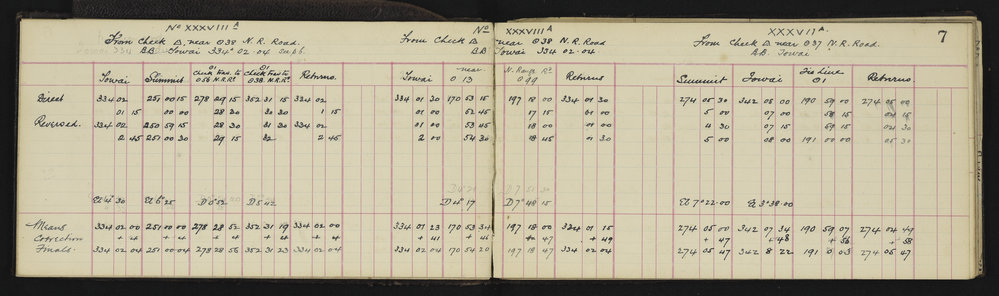 No XXXVIII A
From Check Δ, near O38 N.R. Road.
BB Iowai 334° 02 - 04 subs.
Iowai Summit O1 Check Δ to O56 N.R.Rd. O1 Check Δ to O38 N.R.Rd. Returns.
Direct 334 02 251 00 15 278 29 15 352 31 15 334 02
01 15 00 00 28 30 30 30 01 15
Reversed. 334 02 250 59 15 28 30 31 30 334 02
2 45 251 00 30 29 15 32 2 45
El 4° 30 El 6° 25 D 0° 52 D 5 42
Means 334 02 00 251 00 00 278 28 52 352 31 19 334 02 00
Correction + 4 + 4 + 4 + 4 + 4
Finals. 334 02 04 251 00 04 278 28 56 352 31 23 334 02 04
No XXXVIII A
From Check Δ near O38 N.R. Road
BB Iowai 334 02 - 04
Iowai near O 13 N. Range Rd. O 99 Returns
334 01 30 170 53 15 197 18 00 334 01 30
01 00 52 45 17 15 01 00
01 00 53 45 18 00 01 00
2 00 54 30 18 45 01 30
D 4° 17 D 7° 48 15
334 01 23 170 53 34 197 18 00 334 01 15
+ 41 + 46 + 47 + 49
334 02 04 170 54 20 197 18 47 334 02 04
XXXVII A.
7
From Check Δ near O37 N.R. Road.
BB. Iowai
Summit Iowai Fix Line O1 Returns
274 05 30 342 08 00 190 59 00 274 05 00
5 00 07 00 58 15 04 15
4 30 07 15 59 15 04 30
5 00 08 00 191 00 00 05 30
El 7° 22 - 00 El 3° 38 - 00
274 05 00 342 07 34 190 59 07 274 04 49
+ 47 + 48 + 56 + 58
274 05 47 342 8 22 191 0 03 274 05 47